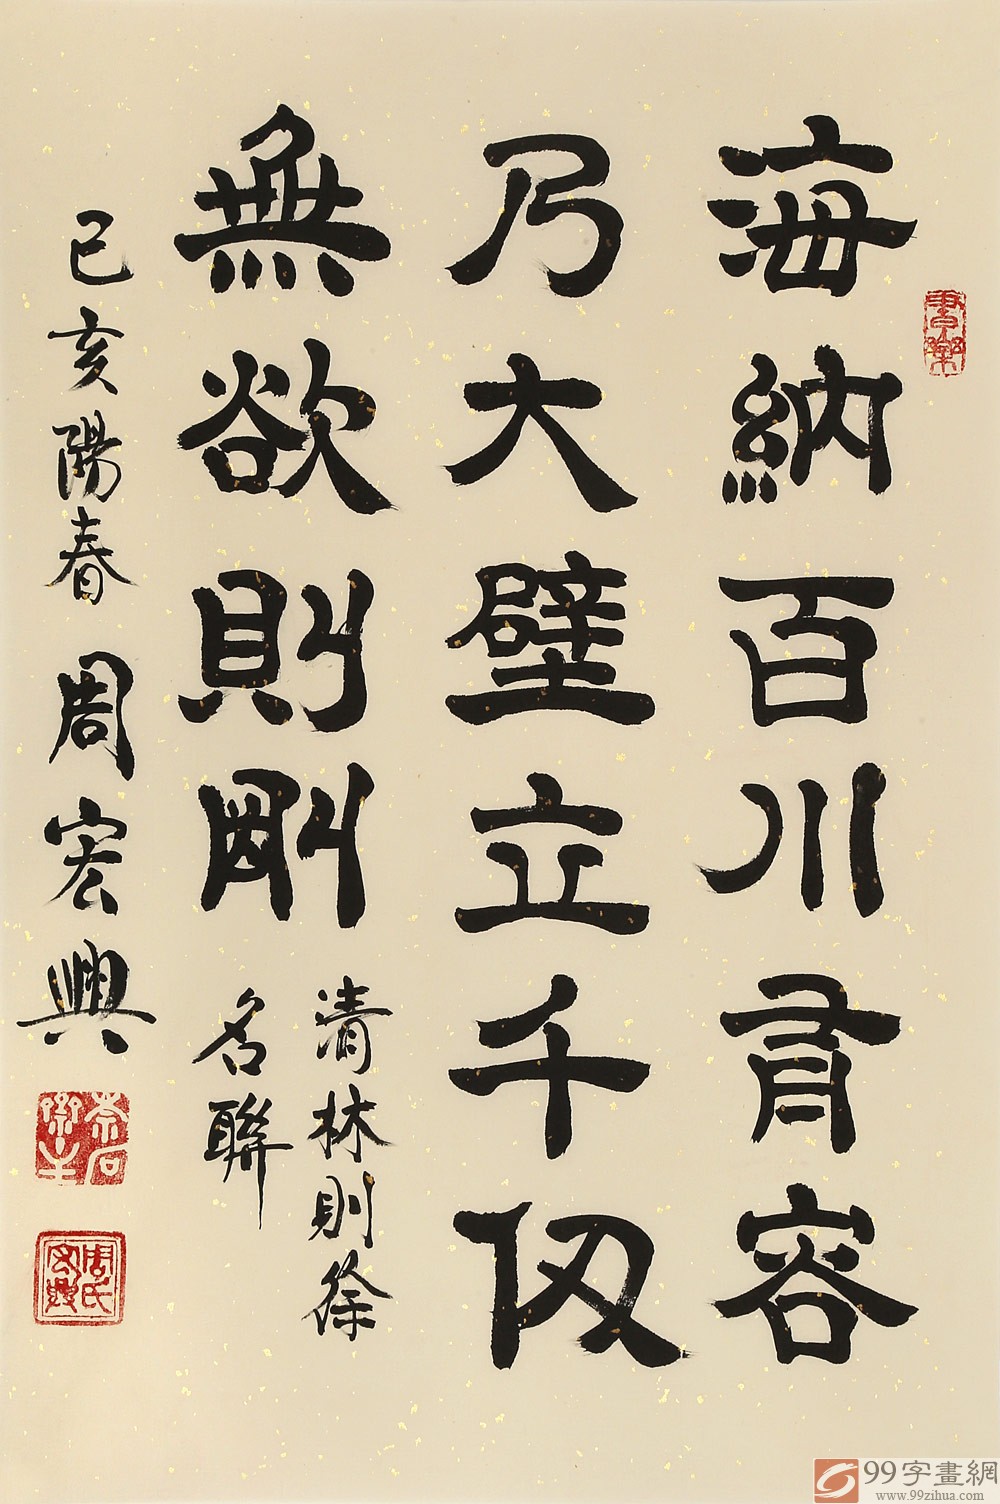 海納百川有容
乃大壁立千仞
無欲則剛
清林則徐
名聯
己亥陽春 周宏興
99字畫網
www.99zihua.com